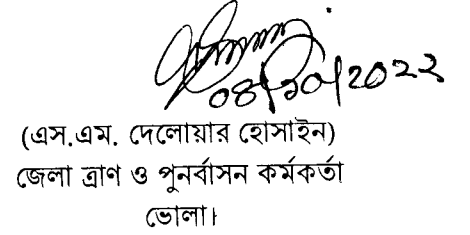 ০৪/১০/২০২২
(এস.এম. দেলোয়ার হোসাইন)
জেলা ত্রাণ ও পুনর্বাসন কর্মকর্তা
ভোলা।